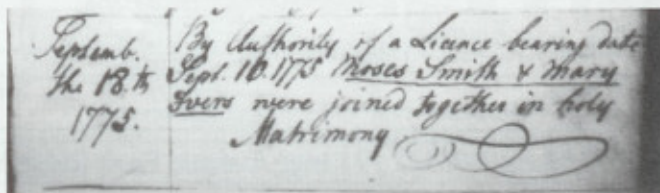 Septemb.
the 18.th
1775.
By Authority of a Licence bearing date
Sept. 10. 1775 Moses Smith & Mary
Ivers were joined together in holy
Matrimony